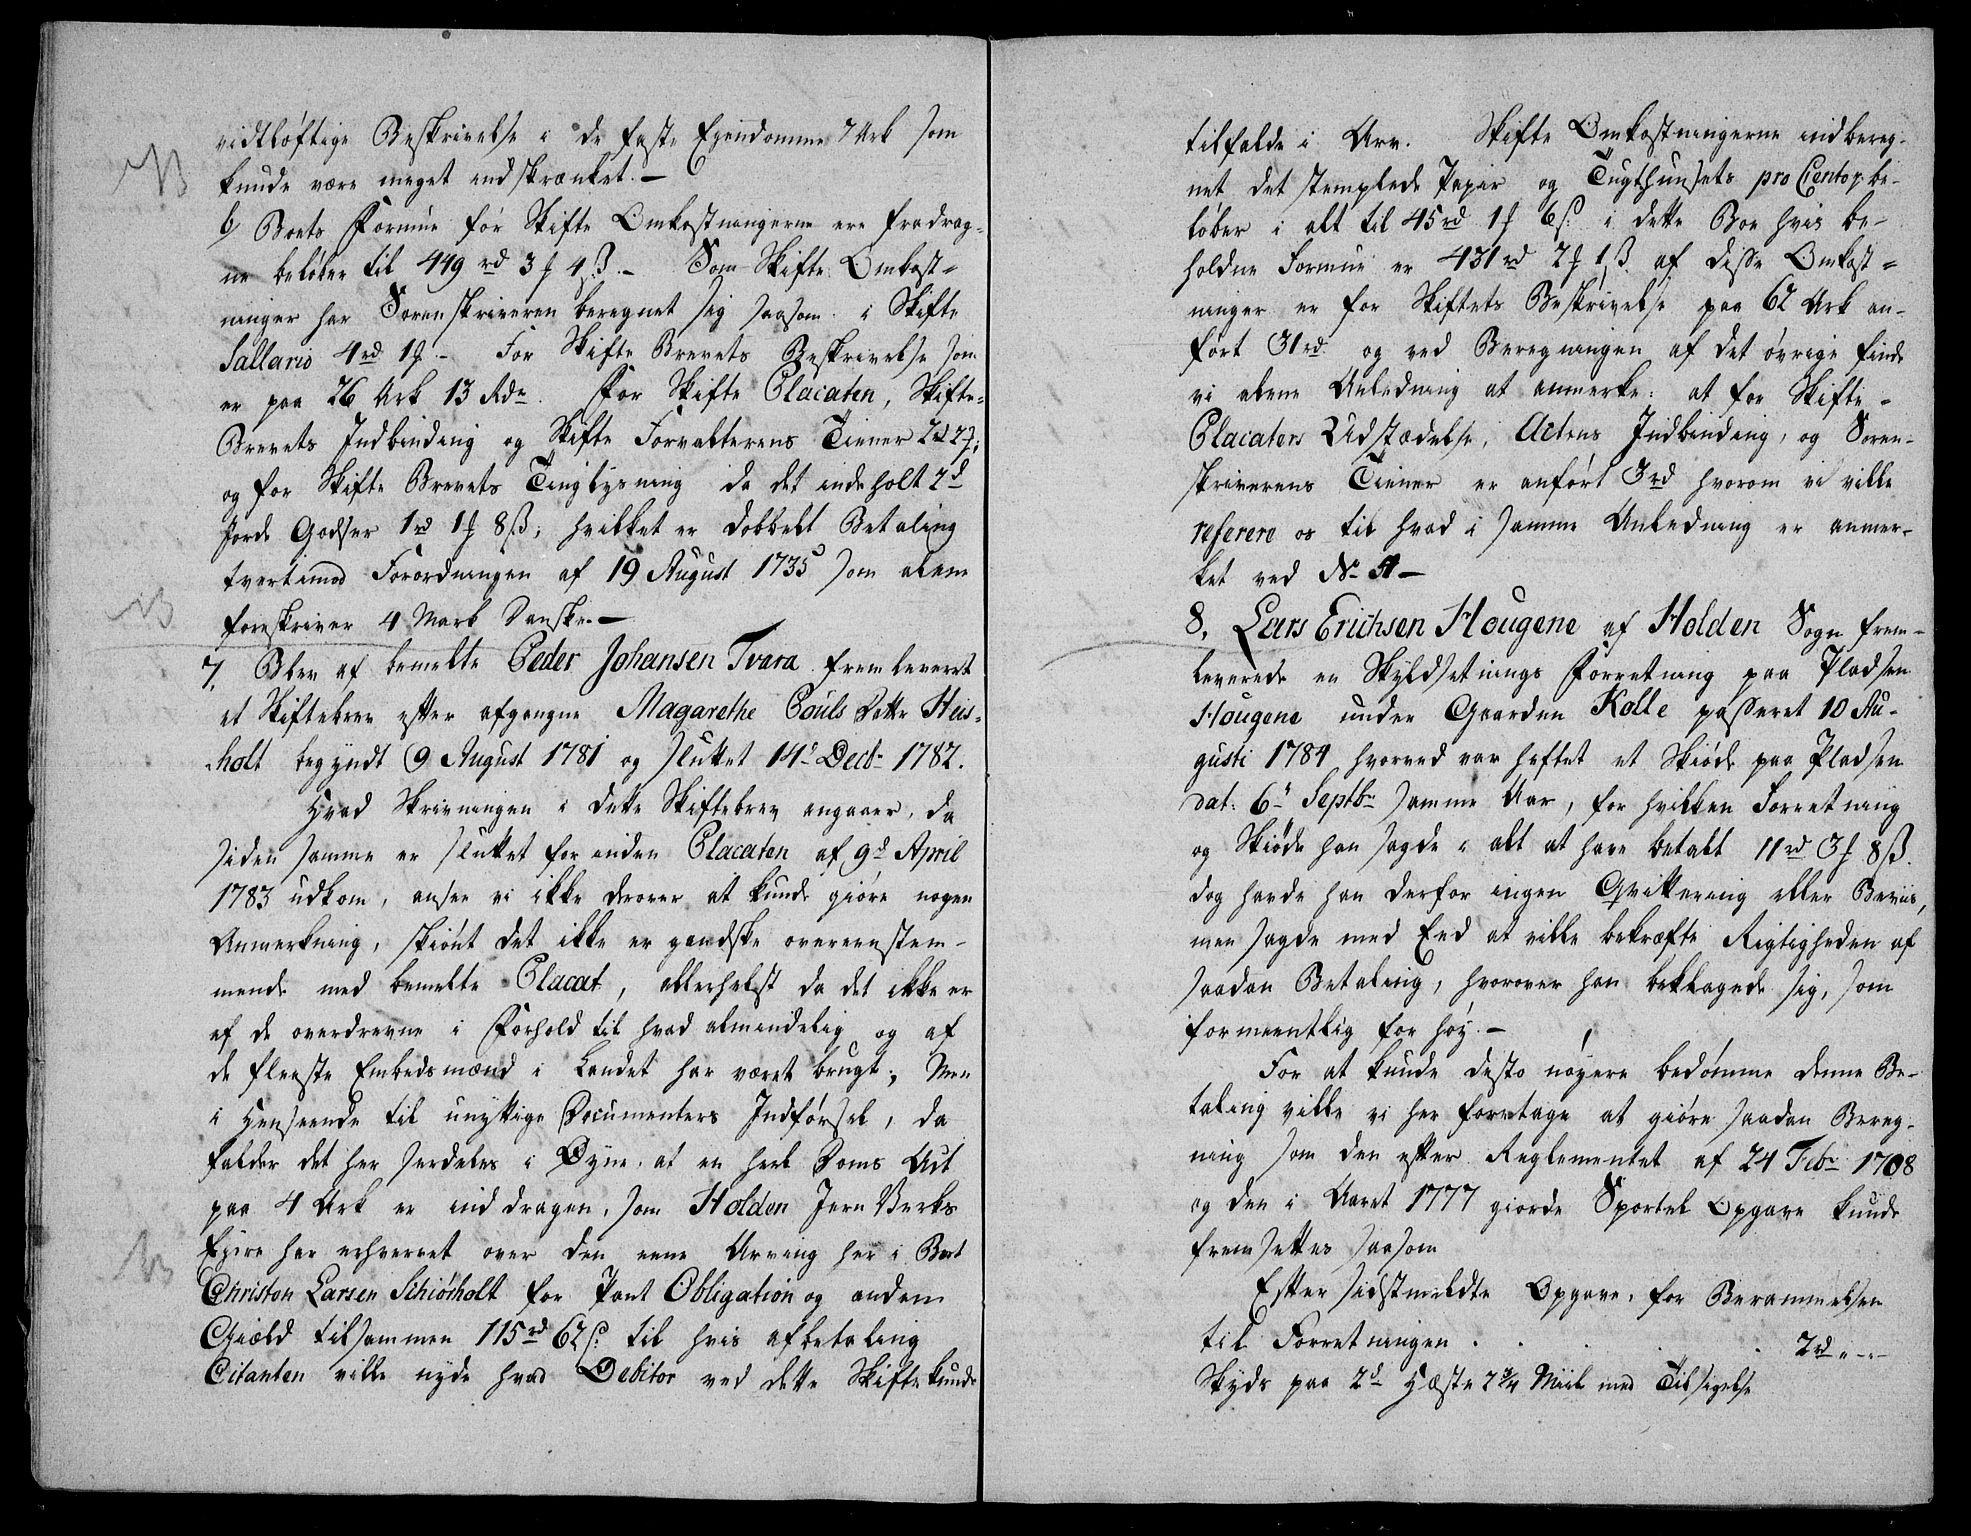 vidtløftige Beskrivelse i de faste Eyendomme 7 Ark som
NB
kunde være meget indskrænket. —
b) Boets Formue før Skifte Omkostningerne ere fradrag-
ne beløber til 449 rd 3 ʃ 4 ß. — Som Skifte Omkost-
ninger har Sorenskriveren beregnet sig saasom: i Skifte
Sallario 4 rd 1 ʃ — For Skifte Brevets Beskrivelse som
er paa 26 Ark 13 Rdr. For Skifte Placaten, Skifte-
Brevets Indbinding og Skifte Forvalterens Tiener 2 rd 2 ʃ;
og for Skifte Brevets Tinglysning da det indeholt 2d
Jorde Godser 1 rd 1 ʃ 8 ß, hvilket er dobbelt Betaling
tvertimod Forordningen af 19 August 1735 som alene
NB
foreskriver 4 Mark Danske. —
7. Blev af bemelte Peder Johansen Tvara fremleveret
et Skiftebrev efter afgangne Magarethe Pouls Datter Heis-
holt begyndt 9 August 1781 og sluttet 14de Decbr 1782.
Hvad Skrivningen i dette Skiftebrev angaaer, da
siden samme er sluttet før enden Placaten af 9d April
1783 udkom, ansee vi ikke derover at kunde giøre nogen
Anmerkning, skiønt det ikke er gandske overeenstem-
mende med bemelte Placat, allerhelst da det ikke er
af de overdrevne i Forhold til hvad almindelig og af
de fleeste Embedsmænd i Landet har været brugt; Men
i Henseende til unyttige Documenters Indførsel, da
falder det her serdeles i Øyne, at en heel Doms Act
paa 4 Ark er inddragen, som Holden Jern Verks
Eyere har erhvervet over den eene Arving her i Boet
NB
Christen Larsen Schiørholt for Pant Obligation og anden
Giæld tilsammen 115 rd 62 s. til hvis afbetaling
Citanten ville nyde hvad Debitor ved dette Skifte kunde
tilfalde i Arv. Skifte Omkostningerne indbereg-
net det stemplede Papir og Tugthuusets pro Cento, be-
løber i alt til 45 rd 1 ʃ 6 s. i dette Boe hvis be-
holdne Formue er 431 rd 2 ʃ 1 ß. af disse Omkost-
ninger er for Skiftets Beskrivelse paa 62 Ark an-
ført 31 rd. og ved Beregningen af det øvrige finde
vi alene Anledning at anmerke: at for Skifte-
Placatens Udstædelse, Actens Indbinding, og Soren-
skriverens Tiener er anført 3 rd hvorom vi ville
referere os til hvad i samme Anledning er anmer-
ket ved No 4 —
8. Lars Erichsen Hougene af Holden Sogn frem-
leverede en Skyldsetnings Forretning paa Pladsen
Hougene under Gaarden Kolle passeret 10 Au-
gusti 1784 hvorved var heftet et Skiøde paa Pladsen
dat: 6te Septbr samme Aar, for hvilken Forretning
og Skiøde han sagde i alt at have betalt 11 rd 3 ʃ 8 ß.
dog havde han derfor ingen Qvittering eller Beviis,
men sagde med Eed at ville bekræfte Rigtigheden af
saadan Betaling, hvorover han beklagede sig, som
formeentlig for høy. —
For at kunde desto nøyere bedømme denne Be-
taling ville vi her foretage at giøre saadan Bereg-
ning som den efter Reglementet af 24 Febr 1708
og den i Aaret 1777 giorde Sportel Opgave kunde
fremsettes saasom
Efter sidstmeldte Opgave, for Berammelsen
til Forretningen . . . . 2 rd „ — „ —
Skyds paa 2d Hæste 2 3/4 Miil med Tilsigelse